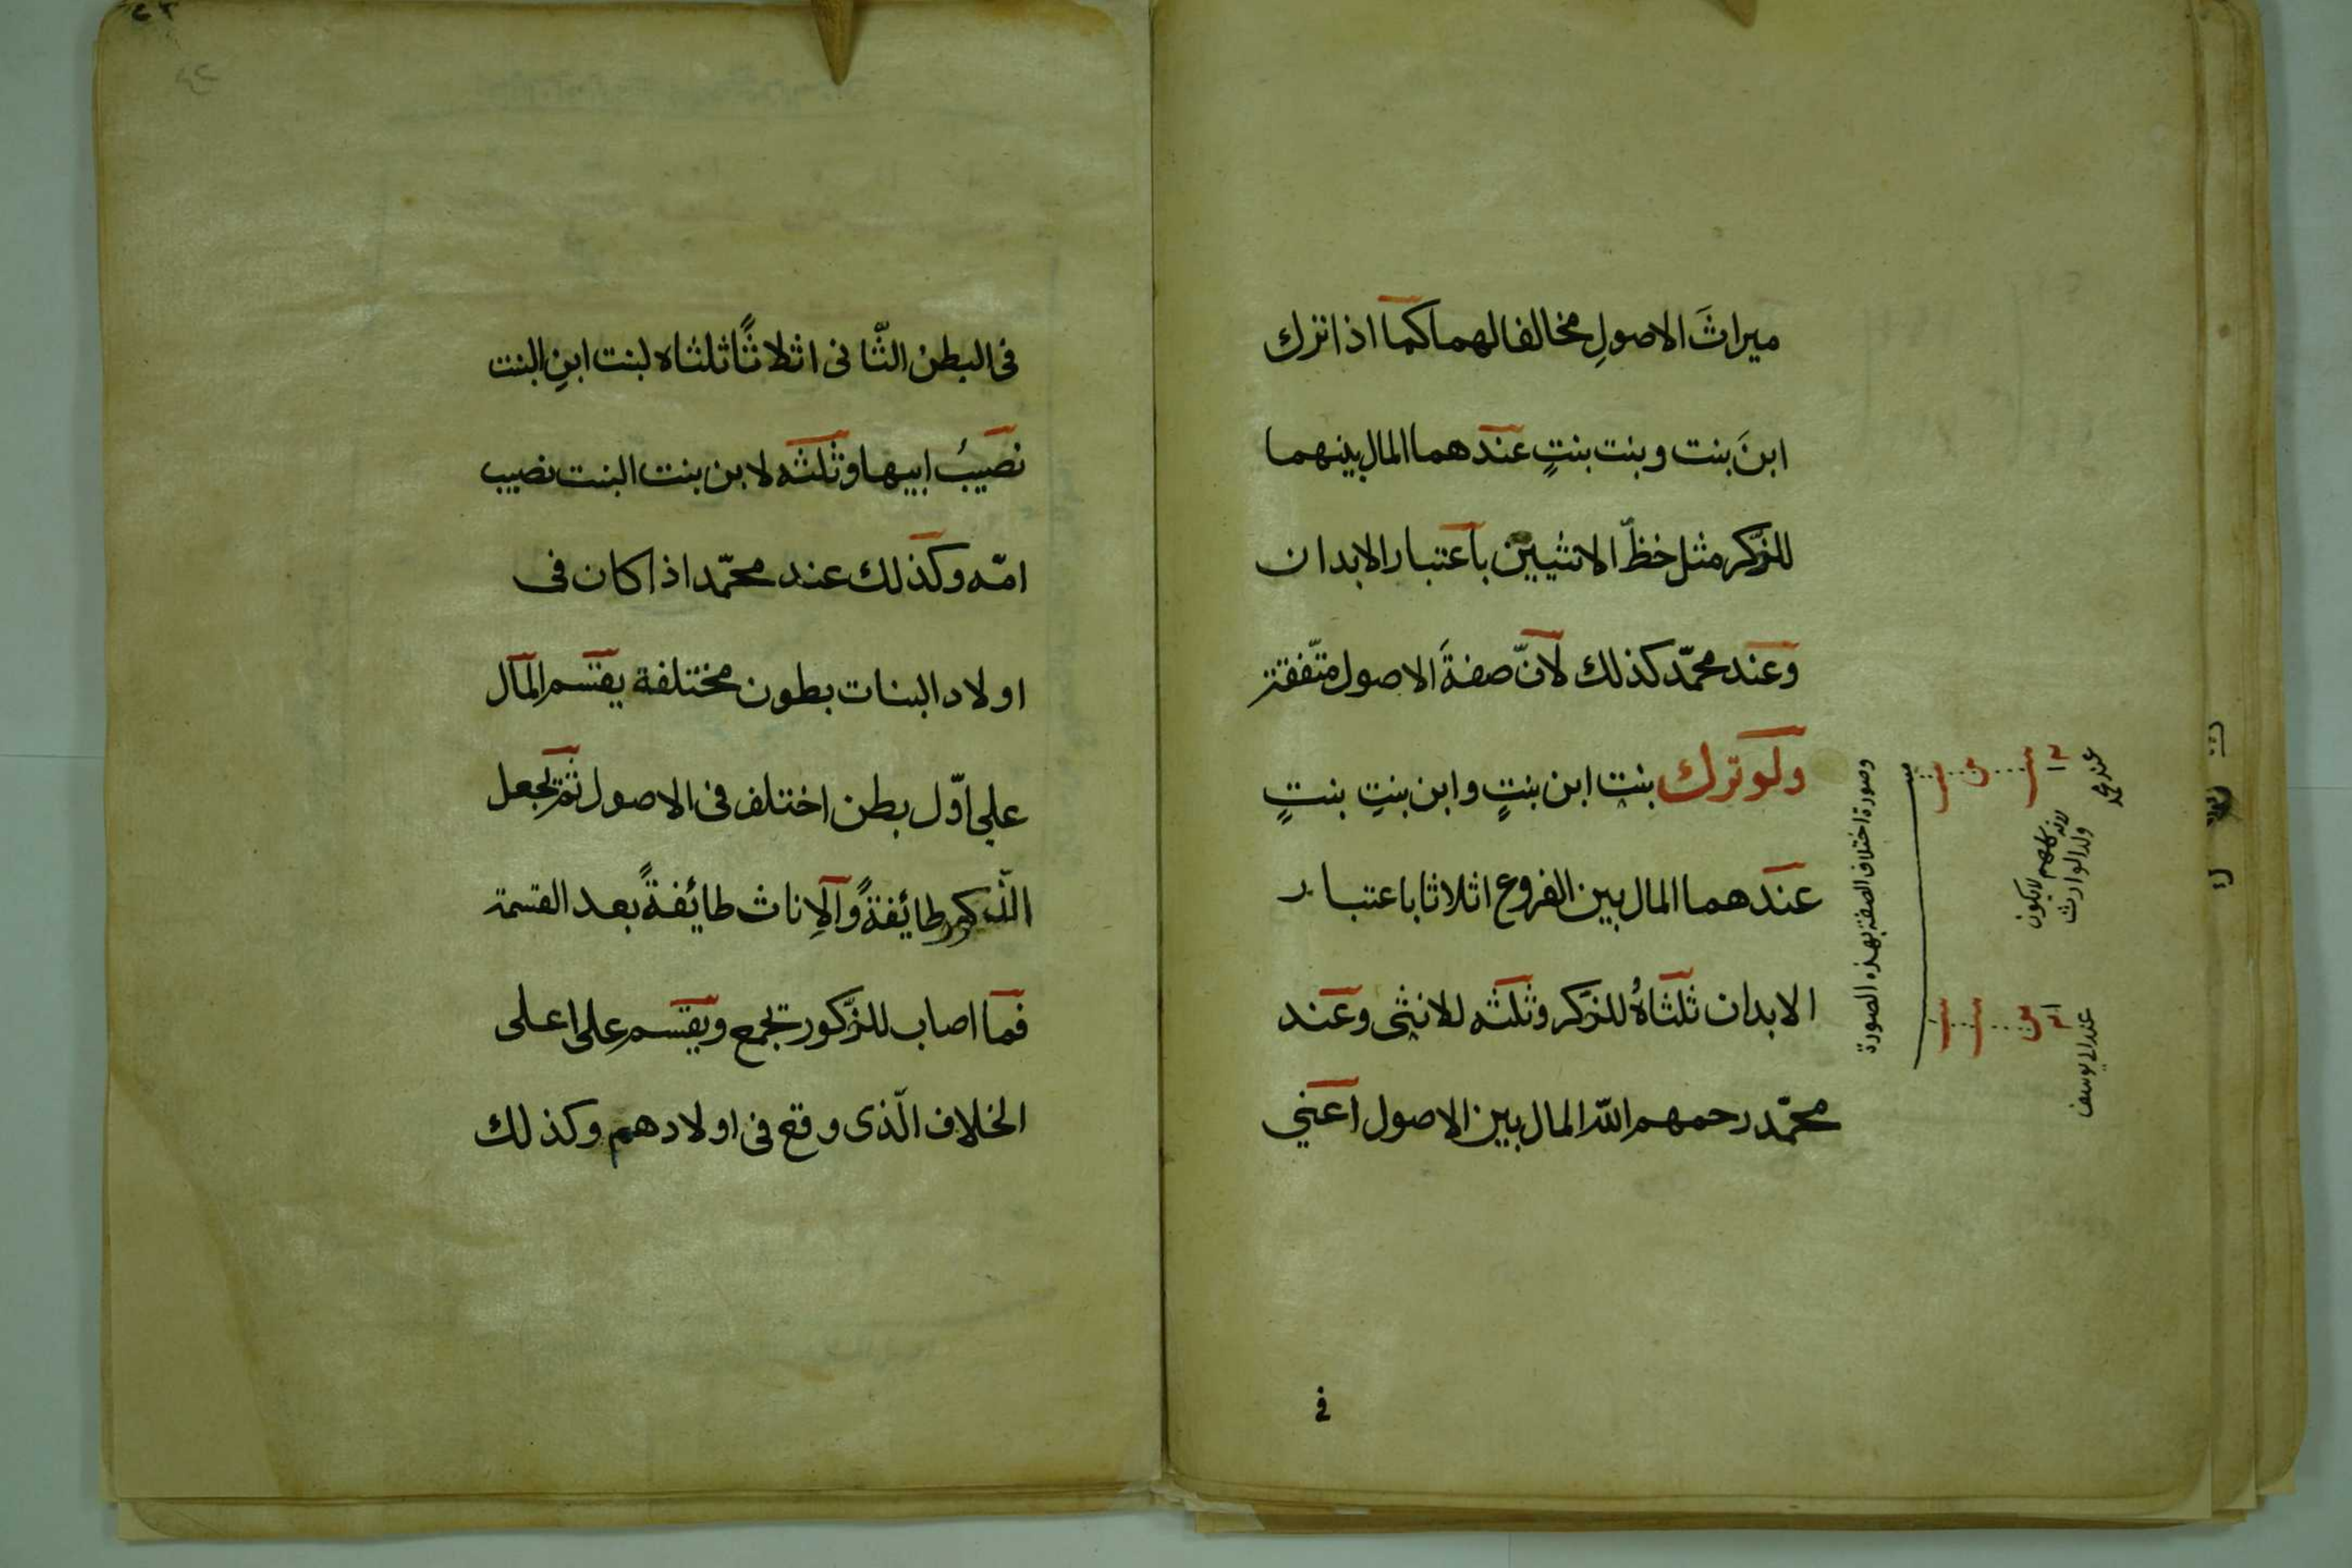 ميراثَ الاصولِ مخالفا لهما كما اذا ترك
ابنَ بنت وبنت بنتٍ عندهما المال بينهما
للذّكر مثل حظّ الانثيين باعتبار الابدان
وعند محمّد كذلك لانّ صفةَ الاصول متّفقة
ولو ترك بنت ابن بنتٍ وابن بنتِ بنتٍ
عندهما المال بين الفروع اثلاثا باعتبار
الابدان ثلثاهُ للذّكر وثلثه للانثى وعند
محمّد رحمهم الله المال بين الاصول اعني
وصورة اختلاف الصفة بهذه الصورة
عند محمد
لانه كلهم
ولد الوارث
عند ابي يوسف
في
فى البطن الثّانى اثلاثًا ثلثاه لبنت ابنِ البنت
نصيبُ ابيها وثلثه لابن بنت البنت نصيب
امّه وكذلك عند محمّد اذا كان فى
اولاد البنات بطون مختلفة يقتسم المال
على اوّل بطن اختلف فى الاصول ثمّ يجعل
الذّكور طائفةً والاِناث طائفةً بعد القسمة
فما اصاب للذّكور تجمع ويقتسم على اعلى
الخلاف الّذى وقع فى اولادهم وكذلك